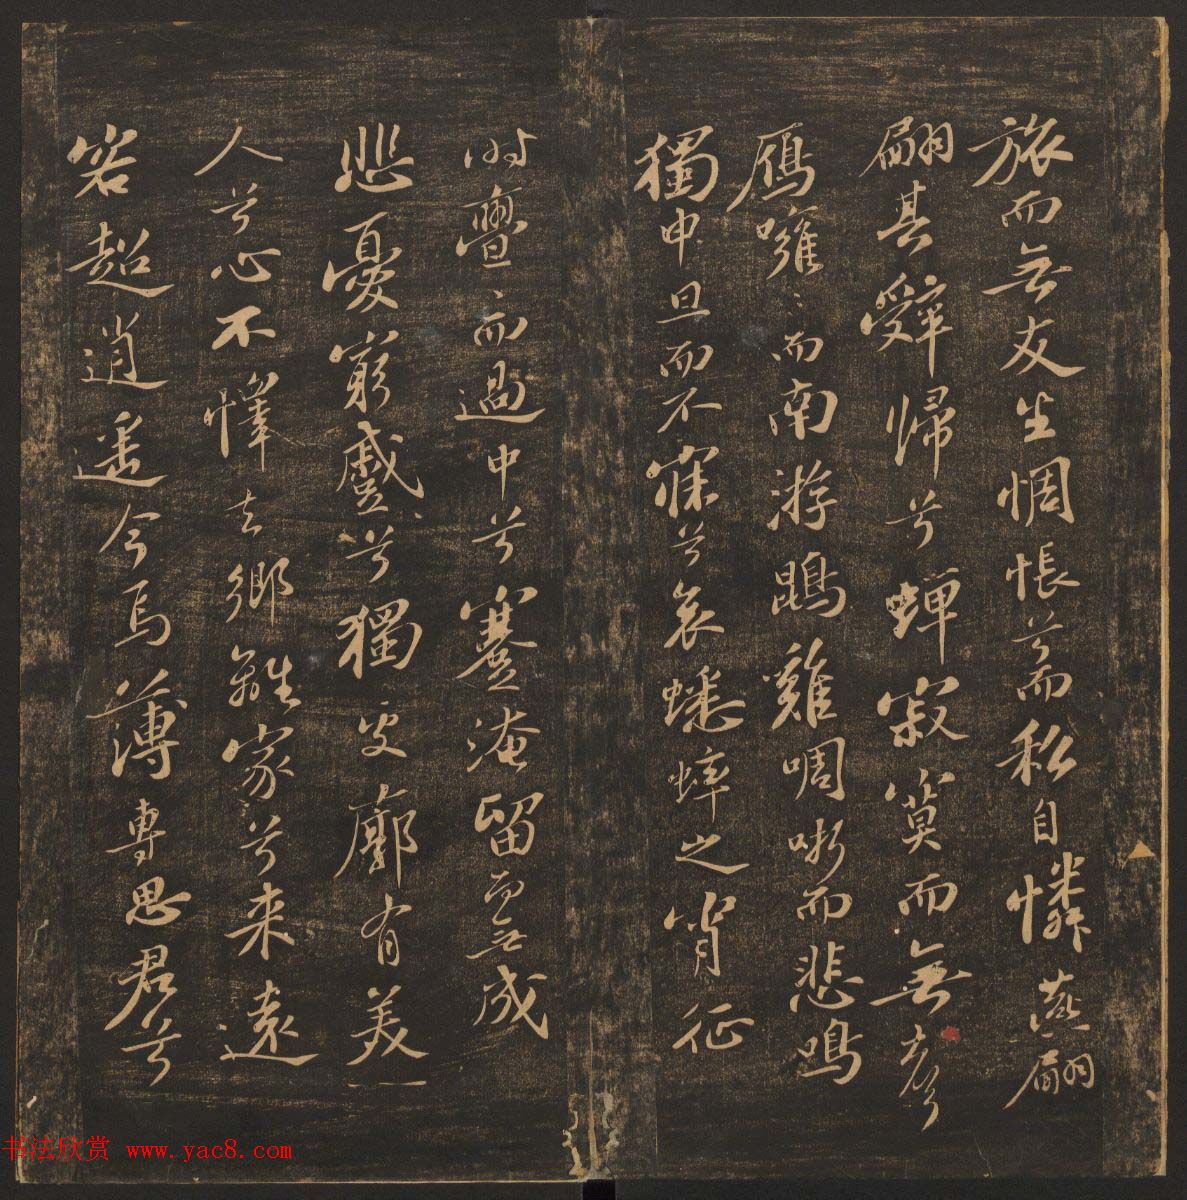 旅而無友生惆悵兮而私自憐燕翩
翩其辤歸兮蟬寂寞而無聲
鴈噰〻而南游鵾雞啁哳而悲鳴
獨申旦而不寐兮哀蟋蟀之宵征
時亹〻而過中兮蹇淹留而無成
悲憂窮蹙兮獨處廓有美一
人兮心不懌去鄉離家兮來遠
客超逍遥今焉薄專思君兮
书法欣赏 www.yac8.com